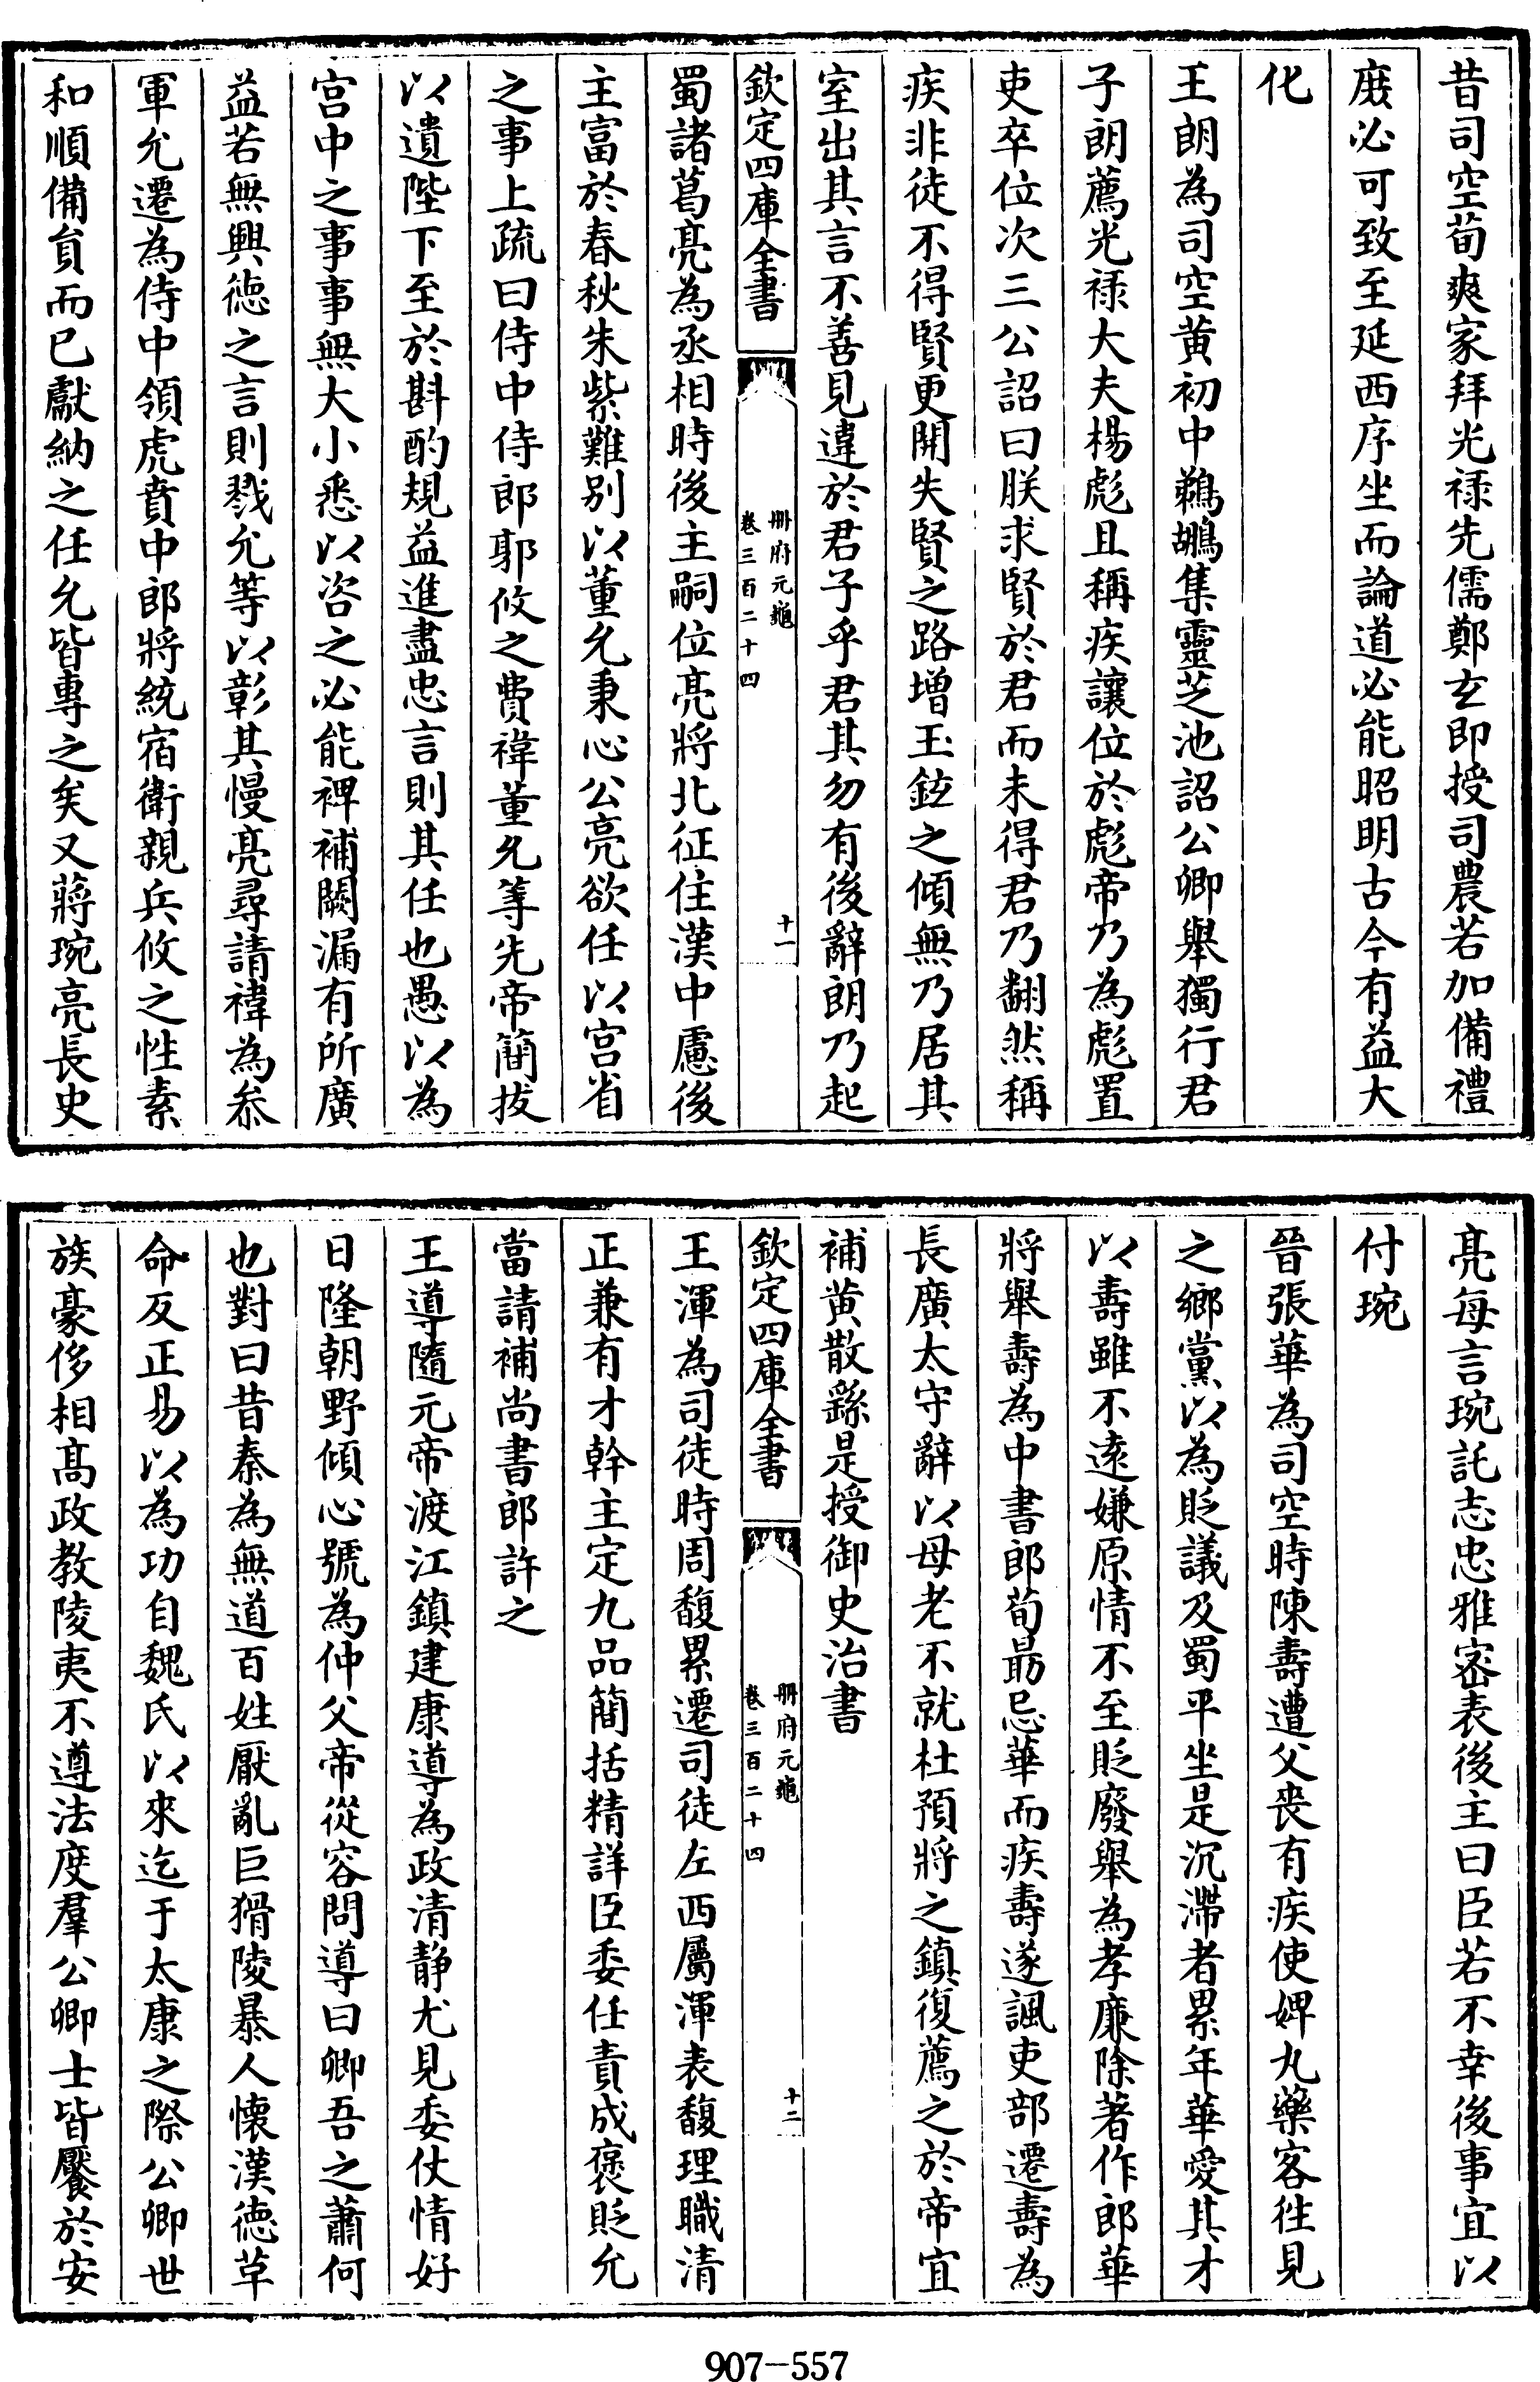 昔司空荀爽家拜光祿先儒鄭玄即授司農若加備禮
庶必可致至延西序坐而論道必能昭明古今有益大
化
王朗為司空黄初中鵜鶘集靈芝池詔公卿舉獨行君
子朗薦光祿大夫楊彪且稱疾讓位於彪帝乃為彪置
吏卒位次三公詔曰朕求賢於君而未得君乃翻然稱
疾非徒不得賢更開失賢之路增玉鉉之傾無乃居其
室出其言不善見違於君子乎君其勿有後辭朗乃起
欽定四庫全書
册府元龜
卷三百二十四
十一
蜀諸葛亮為丞相時後主嗣位亮將北征住漢中慮後
主富於春秋朱紫難别以董允秉心公亮欲任以宫省
之事上疏曰侍中侍郎郭攸之費禕董允等先帝簡拔
以遺陛下至於斟酌規益進盡忠言則其任也愚以為
宫中之事事無大小悉以咨之必能裨補闕漏有所廣
益若無興德之言則戮允等以彰其慢亮尋請禕為叅
軍允遷為侍中領虎賁中郎將統宿衛親兵攸之性素
和順備員而已獻納之任允皆專之矣又蔣琬亮長史
亮每言琬託志忠雅密表後主曰臣若不幸後事宜以
付琬
晉張華為司空時陳壽遭父喪有疾使婢丸藥客徃見
之鄉黨以為貶議及蜀平坐是沉滯者累年華愛其才
以壽雖不逺嫌原情不至貶廢舉為孝亷除著作郎華
將舉壽為中書郎荀勗忌華而疾壽遂諷吏部遷壽為
長廣太守辭以母老不就杜預將之鎮復薦之於帝宜
補黄散繇是授御史治書
欽定四庫全書
册府元龜
卷三百二十四
十二
王渾為司徒時周馥累遷司徒左西屬渾表馥理職清
正兼有才幹主定九品簡括精詳臣委任責成襃貶允
當請補尚書郎許之
王導隨元帝渡江鎮建康導為政清静尤見委仗情好
日隆朝野傾心號為仲父帝從容問導曰卿吾之蕭何
也對曰昔秦為無道百姓厭亂巨猾陵暴人懐漢德革
命反正易以為功自魏氏以來迄于太康之際公卿世
族豪侈相髙政教陵夷不遵法度羣公卿士皆饜於安
907-557